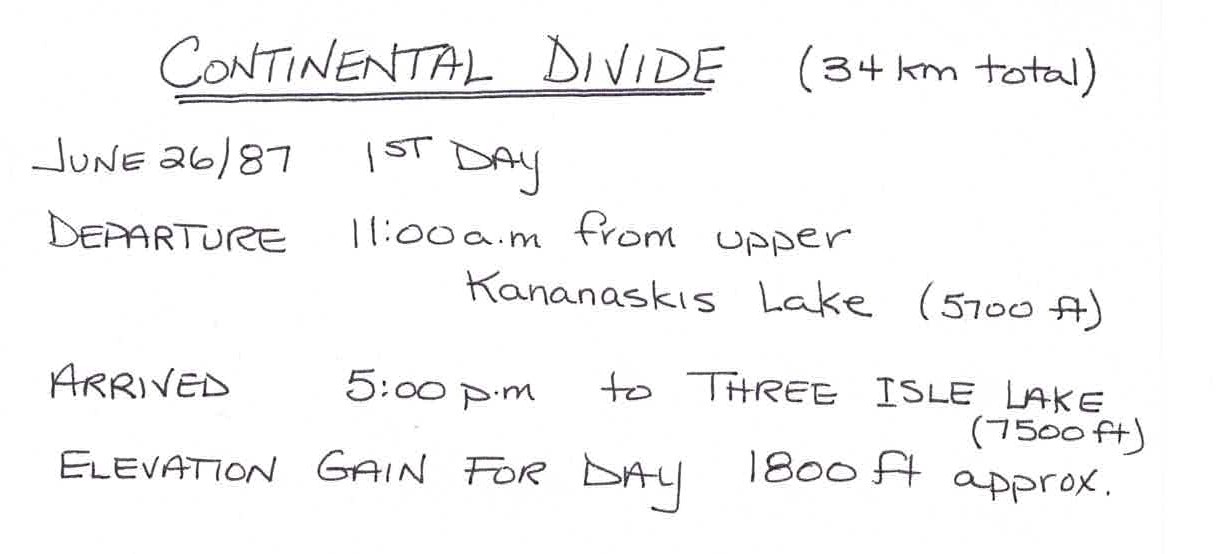 CONTINENTAL DIVIDE (34 km total)
JUNE 26/87 1ST DAY
DEPARTURE 11:00 a.m from upper
Kananaskis Lake (5700 ft)
ARRIVED 5:00 p.m to THREE ISLE LAKE
(7500 ft)
ELEVATION GAIN FOR DAY 1800 ft approx.